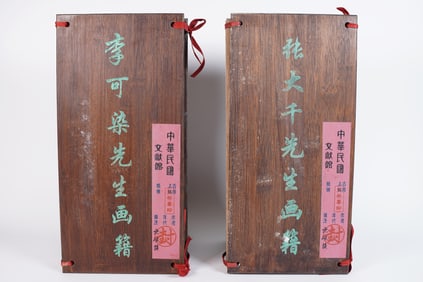 李可染先生画籍
中華民國
文獻館
封
张大千先生画籍
中華民國
文獻館
封